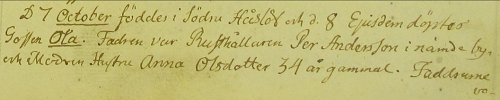 D 7 October föddes i Södra Håslöf och d. 8 Ejusdem döptes
Gossen Ola. Fadren var Rusthållaren Per Andersson i nämde by,
och Modren Hustru Anna Olsdotter 34 år gammal. Faddrarne
vo-